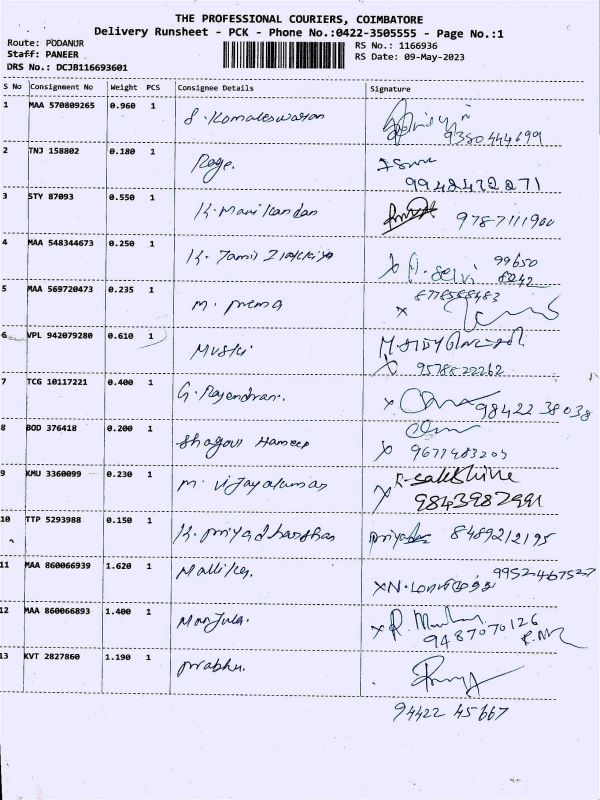 THE PROFESSIONAL COURIERS, COIMBATORE
Delivery Runsheet - PCK - Phone No.:0422-3505555 - Page No.:1
Route: PODANUR RS No.: 1166936
Staff: PANEER RS Date: 09-May-2023
DRS No.: DCJB116693601
S No Consignment No Weight PCS Consignee Details Signature
1 MAA 570809265 0.960 1 S. Komaleswaran
9380444699
2 TNJ 158802 0.180 1 Rage.
3 STY 87093 0.550 1 K. Manikandan 978-7111900
4 MAA 548344673 0.250 1 K. Tamil 99650
X A. Selvi 8242
5 MAA 569720473 0.235 1 M. Prema 8778588483
X
6 VPL 942079280 0.610 1 Muski
X 9578822262
7 TCG 10117221 0.400 1 G. Rajendran. X 98422 38038
8 BOD 376418 0.200 1 Shagow Hameed X 9677483205
9 KMU 3360099 0.230 1 M. Vijayakumar X
9843987991
10 TTP 5293988 0.150 1 K. Priyadharshan 8489212195
11 MAA 860066939 1.620 1 Mallika. 9952467527
X N.
12 MAA 860066893 1.400 1 Manjula. X R.
9487070126
13 KVT 2827860 1.190 1 Prabhu.
94422 45667